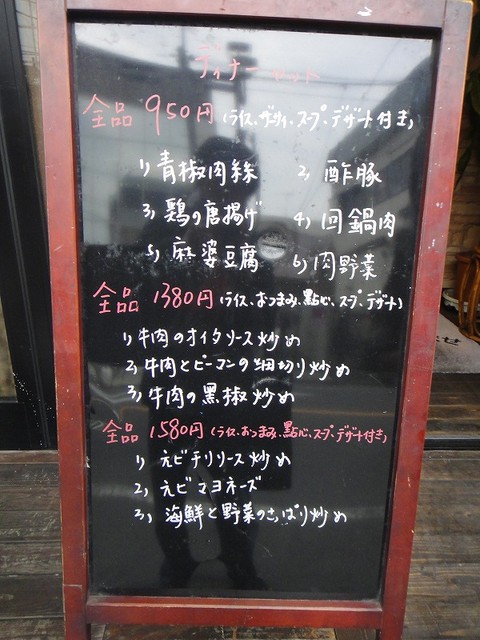 ディナーセット
全品 950円 (ライス、ザーサイ、スープ、デザート付き)
1) 青椒肉絲 2) 酢豚
3) 鶏の唐揚げ 4) 回鍋肉
5) 麻婆豆腐 6) 肉野菜
全品 1380円 (ライス、おつまみ、點心、スープ、デザート)
1) 牛肉のオイタソース炒め
2) 牛肉とピーコンの細切り炒め
3) 牛肉の黒椒炒め
全品 1580円 (ライス、おつまみ、點心、スープ、デザート付き)
1) 元ビチリソース炒め
2) 元ビマヨネーズ
3) 海鮮と野菜のさっぱり炒め